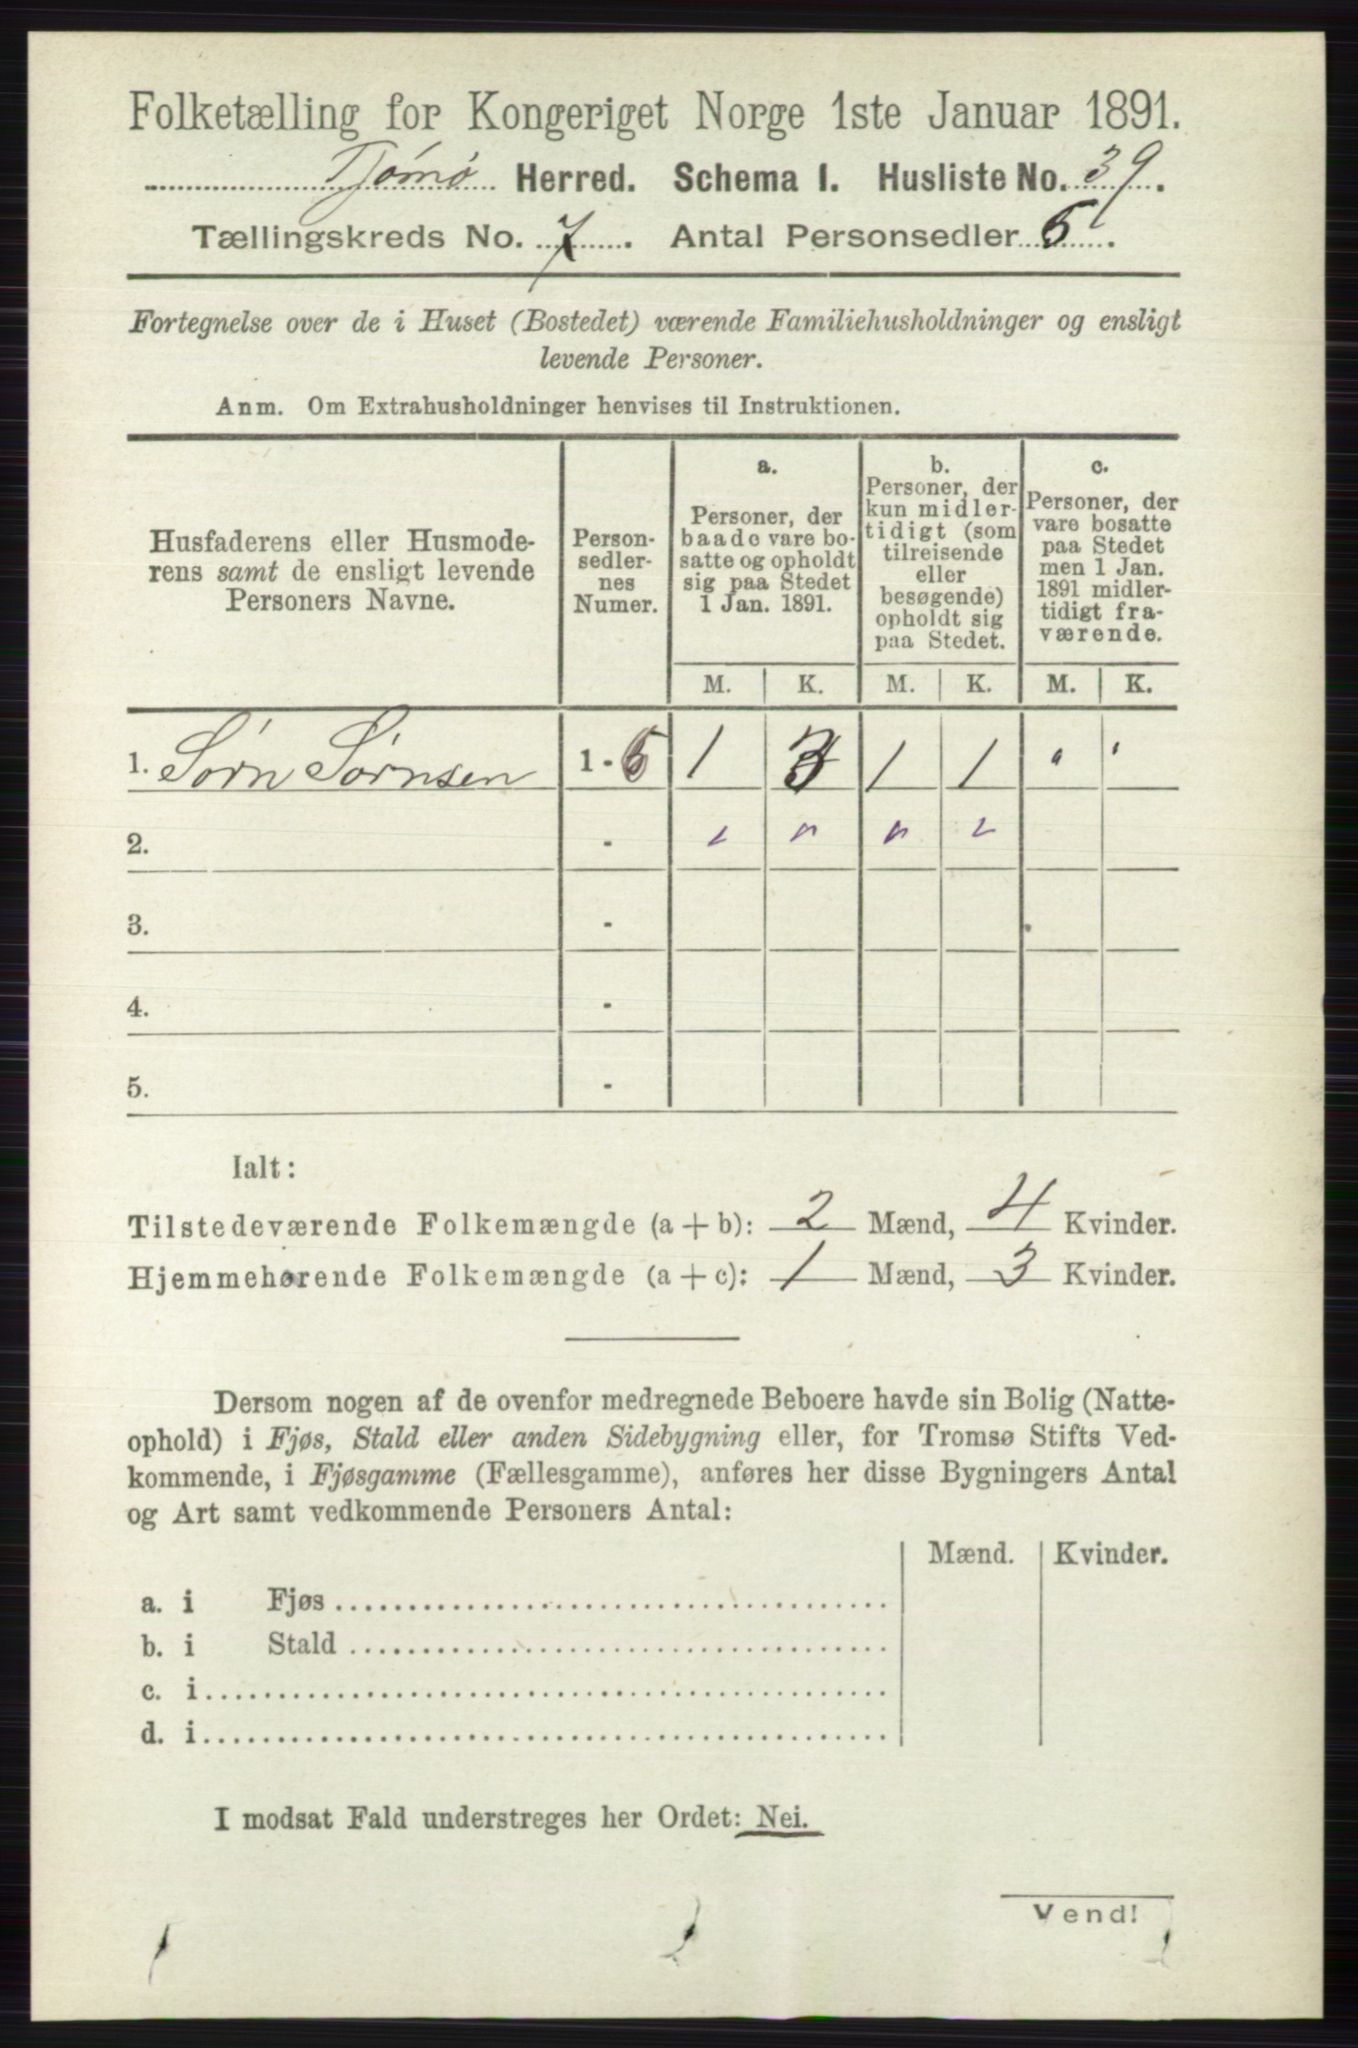 Folketælling for Kongeriget Norge 1ste Januar 1891.
Tjømø Herred. Schema I. Husliste No. 39.
Tællingskreds No. 7. Antal Personsedler 6.
Fortegnelse over de i Huset (Bostedet) værende Familiehusholdninger og ensligt
levende Personer.
Anm. Om Extrahusholdninger henvises til Instruktionen.
Husfaderens eller Husmode-
rens samt de ensligt levende
Personers Navne.
Person-
sedler-
nes
Numer.
a.
Personer, der
baade vare bo-
satte og opholdt
sig paa Stedet
1 Jan. 1891.
b.
Personer, der
kun midler-
tidigt (som
tilreisende
eller
besøgende)
opholdt sig
paa Stedet.
c.
Personer, der
vare bosatte
paa Stedet
men 1 Jan.
1891 midler-
tidigt fra-
værende.
M. K. M. K. M. K.
1. Sørn Sørnsen 1 - 6 1 3 1 1 " "
2. -
3. -
4. -
5. -
Ialt:
Tilstedeværende Folkemængde (a + b): 2 Mænd, 4 Kvinder.
Hjemmehørende Folkemængde (a + c): 1 Mænd, 3 Kvinder.
Dersom nogen af de ovenfor medregnede Beboere havde sin Bolig (Natte-
ophold) i Fjøs, Stald eller anden Sidebygning eller, for Tromsø Stifts Ved-
kommende, i Fjøsgamme (Fællesgamme), anføres her disse Bygningers Antal
og Art samt vedkommende Personers Antal:
Mænd. Kvinder.
a. i Fjøs
b. i Stald
c. i
d. i
I modsat Fald understreges her Ordet: Nei.
Vend!